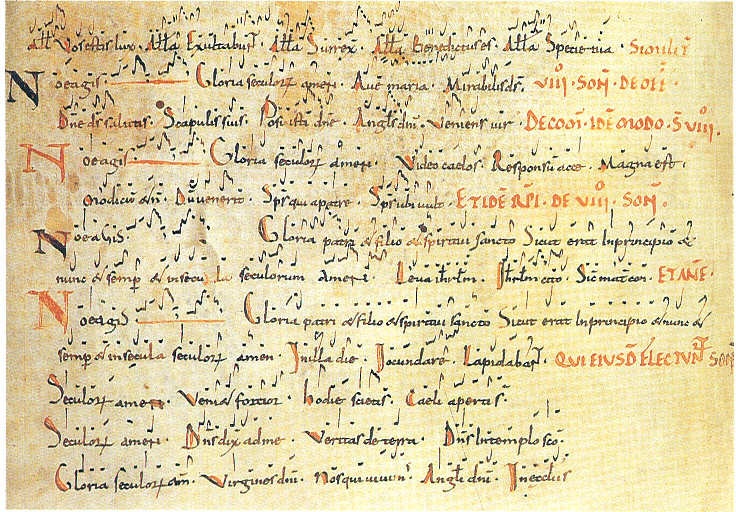 All Vos estis lux. Alla Exultabunt. Alla Surrex. Alla Benedictus es. Alla Speciet tua. SIMILIT
Noeagis. Gloria seculorum amen. Ave maria. Mirabilis ds. VIII. SON. DE OFF.
Dne ds salutis. Scapulis suis. Posuisti dne. Angls dni. Veniens vir. DE COM. IDE MODO. S VIII.
Noeagis. Gloria seculorum amen. Video caelos. Responsu acce. Magna est.
Modicu & n. Du venerit. Sps qui a patre. Sps ubi vult. ET IDE RPI. DE VIII. SON.
Noeagis. Gloria patri & filio & spiritui sancto Sicut erat In principio &
nunc & semp & in secula seculorum amen. Leva ihrlm. Ihrlm cito. Sic mater con. ET ANE.
Noeagis Gloria patri & filio & spiritui sancto Sicut erat In principio & nunc &
semp & in secula seculor amen. In illa die. Jocundare. Lapidabant. QUI EIUSD ELECTUNT SON
Seculor amen. Veni & fortior. hodie scietis. Caeli apertis.
Seculor amen. Dns dix ad me. Veritas de terra. Dns In templo sco.
Gloria seculor am. Virgines dni. Nos qui vivim. Angli dni. In eccliis